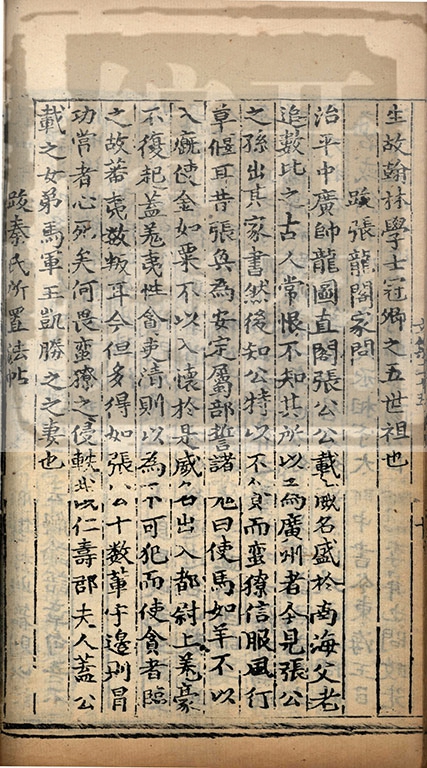 生故翰林學士冠卿之五世祖也
跋張龍閣家問
治平中廣帥龍圖直閣張公公載威名盛於南海父老
追數比之古人常恨不知其所以為廣州者今見張公
之孫出其家書然後知公特以不貪而蠻獠信服風行
草偃耳昔張奐為安定屬部誓諸羌曰使馬如羊不以
入廐使金如粟不以入懷於是威名出入都尉上羌豪
不復起蓋羌夷性貪吏清則以為不可犯而使貪者臨
之故若夷數叛耳今但多得如張公十數輩守邊圳冒
功當者心死矣何畏蠻獠之侵軼哉仁壽郡夫人蓋公
載之女弟馬軍王凱勝之之妻也
跋秦氏所置法帖